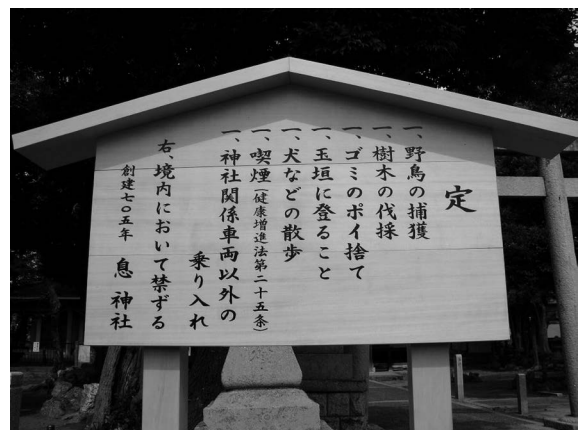 定
一、野鳥の捕獲
一、樹木の伐採
一、ゴミのポイ捨て
一、玉垣に登ること
一、犬などの散歩
一、喫煙(健康増進法第二十五条)
一、神社関係車両以外の
乗り入れ
右、境内において禁ずる
創建七〇五年 息神社